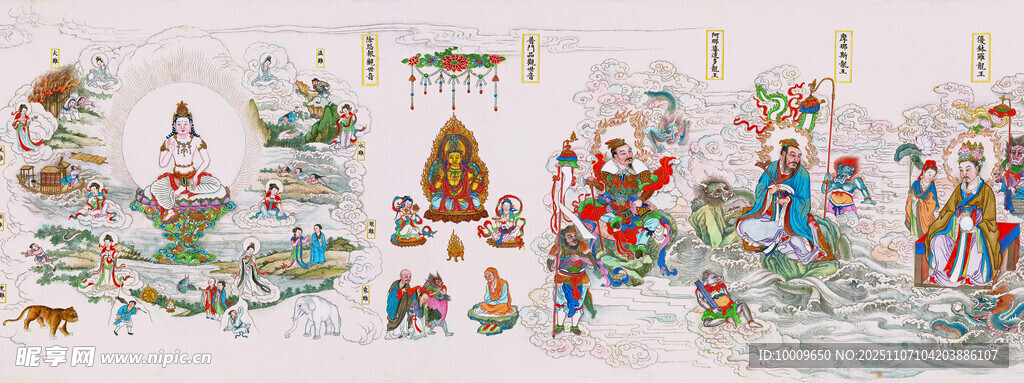 優鉢羅龍王
摩那斯龍王
阿那婆達多龍王
普門品觀世音
除怨報觀世音
火難
象難
昵享网 www.nipic.cn
ID:10009650 NO:20251107104203886107